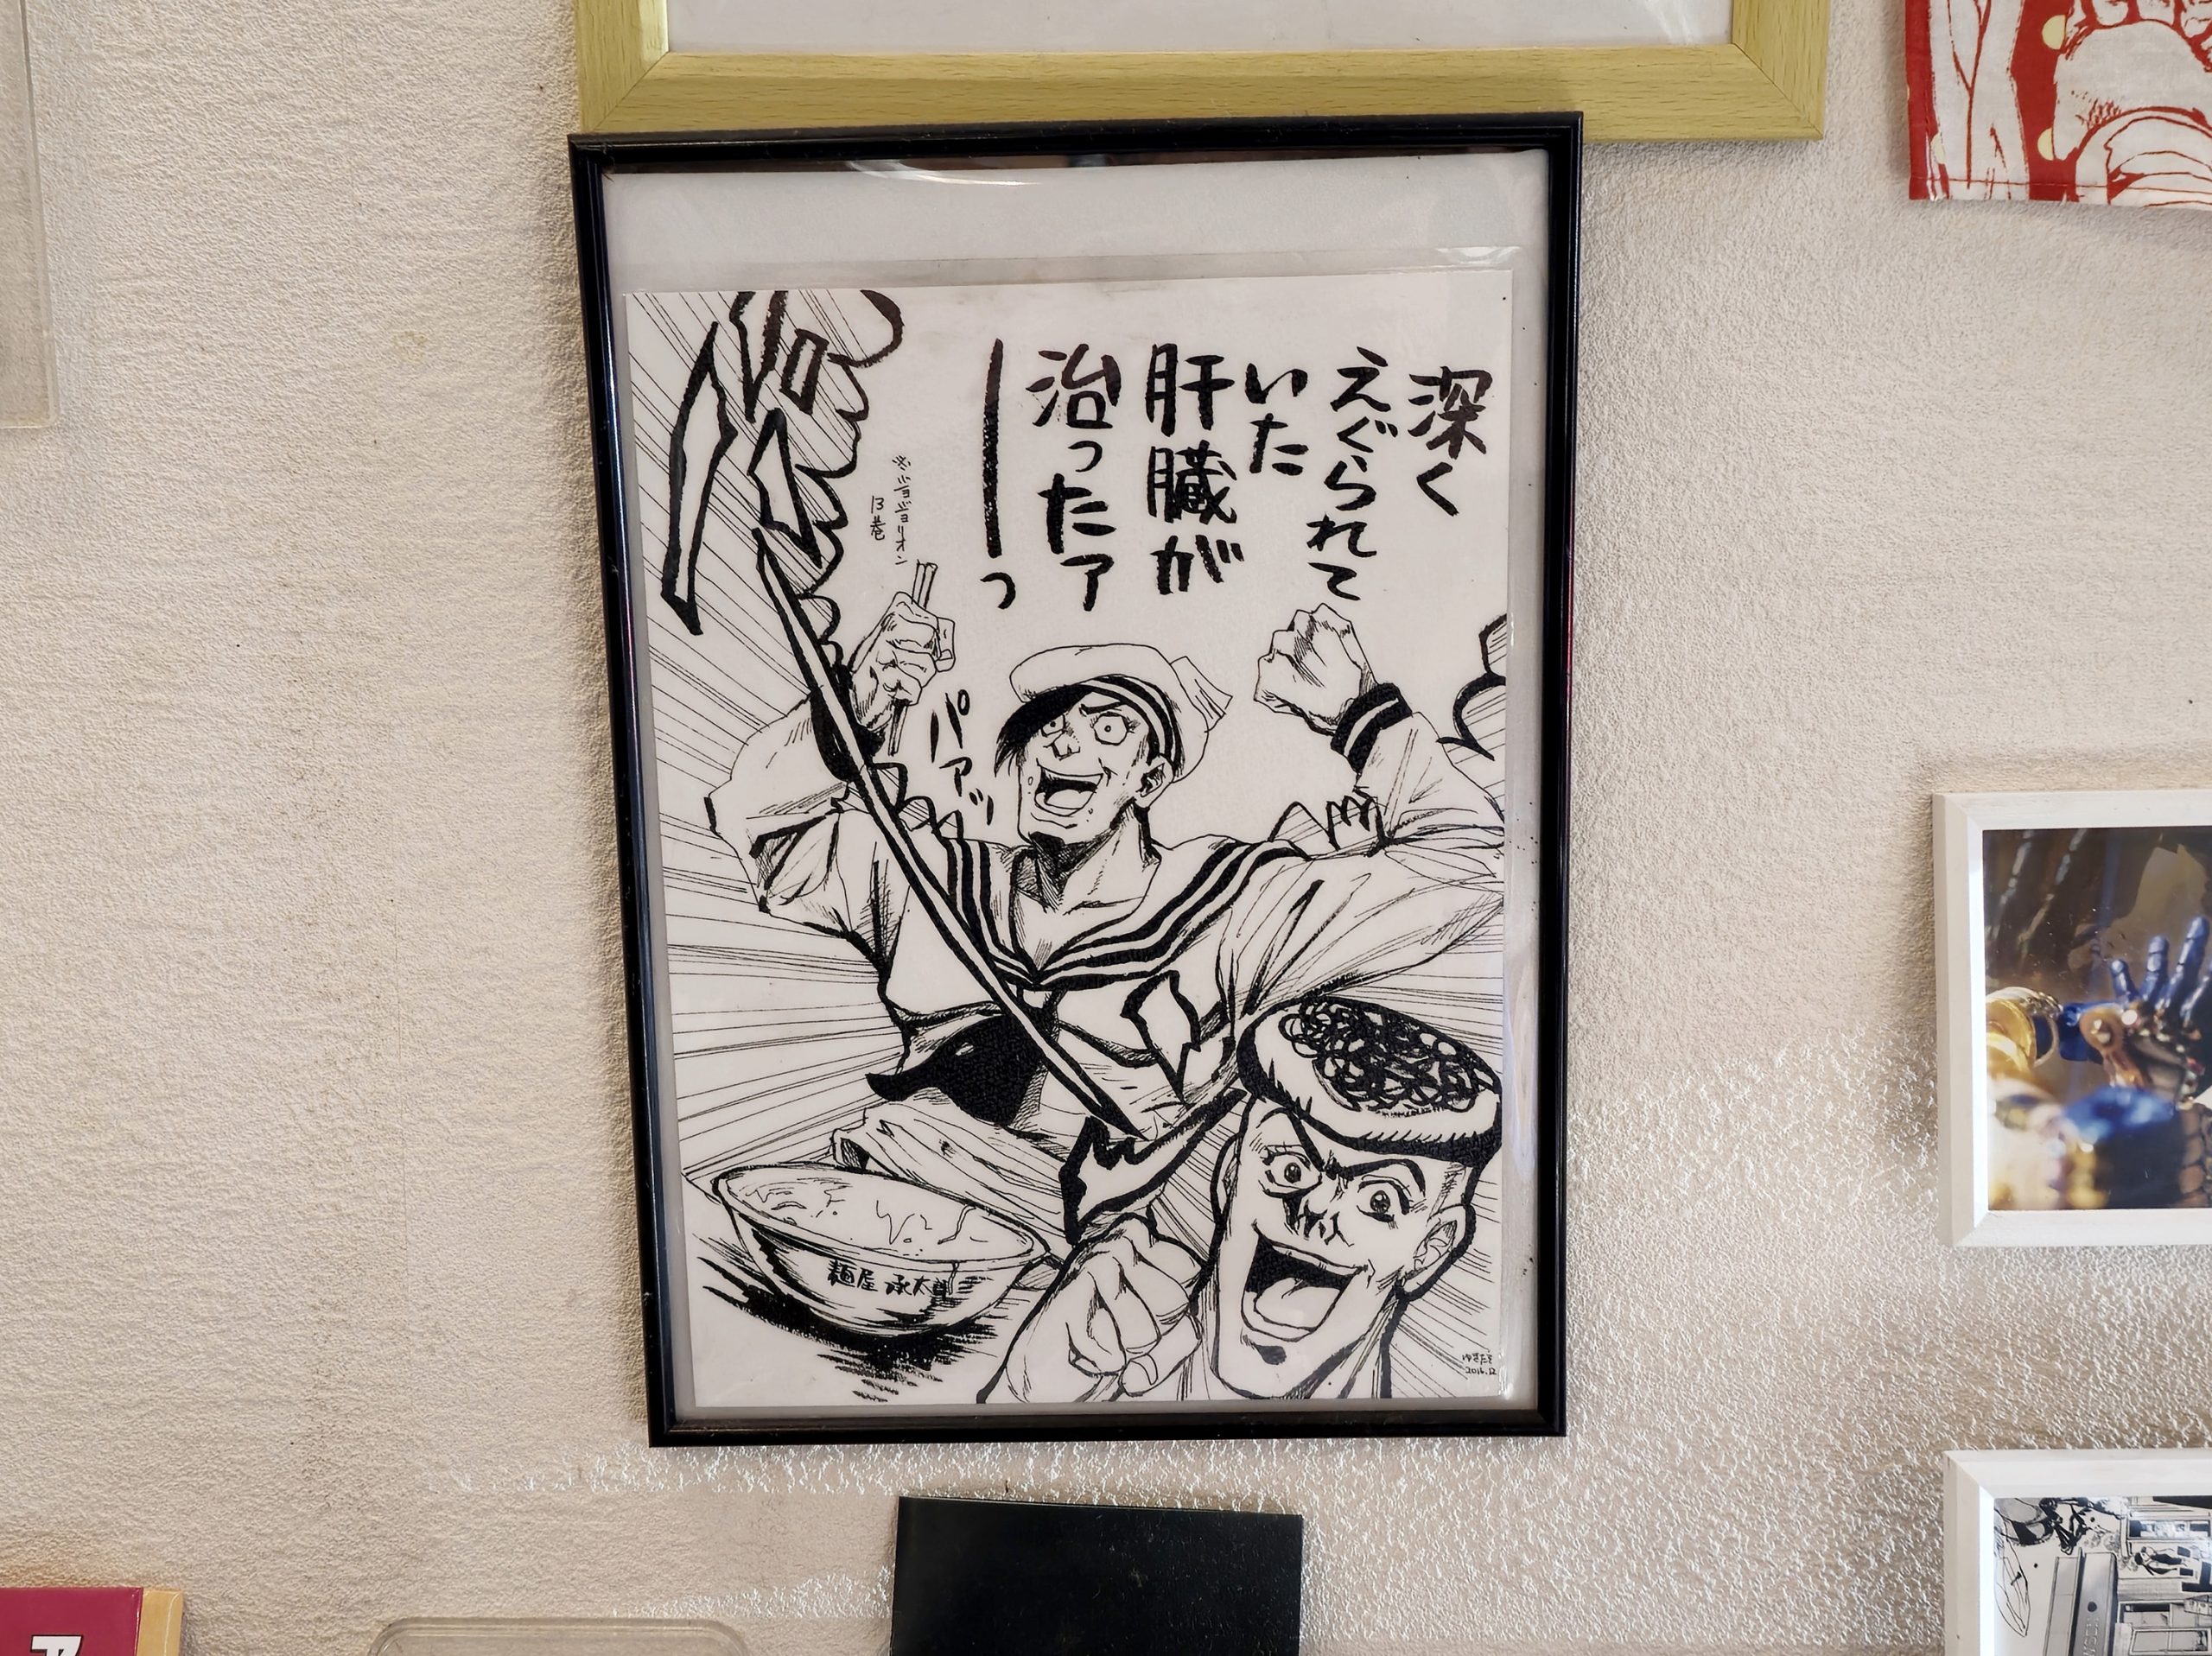 深く
えぐられて
いた
肝臓が
治ったァ
ーーっ
※ジョジョリオン
13巻
パァッ
麺屋 承太郎
ゆきたき
2016.12